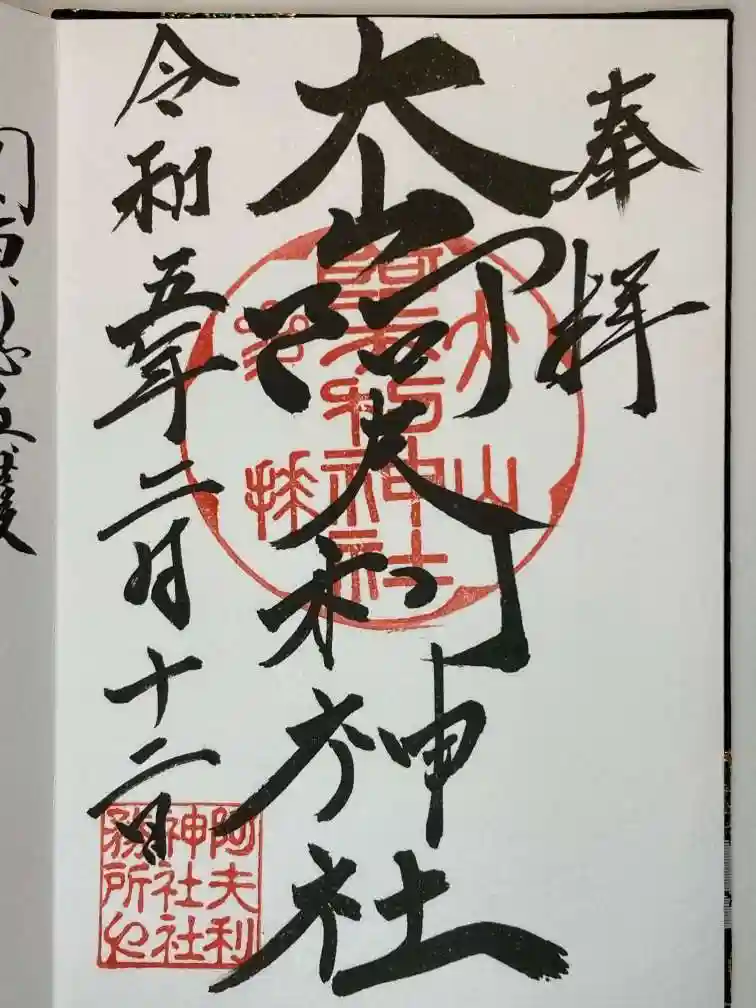 奉拝
大山阿夫利神社
令和五年二月十二日
大山
阿夫利神社
参拝
阿夫利
神社社
務所之